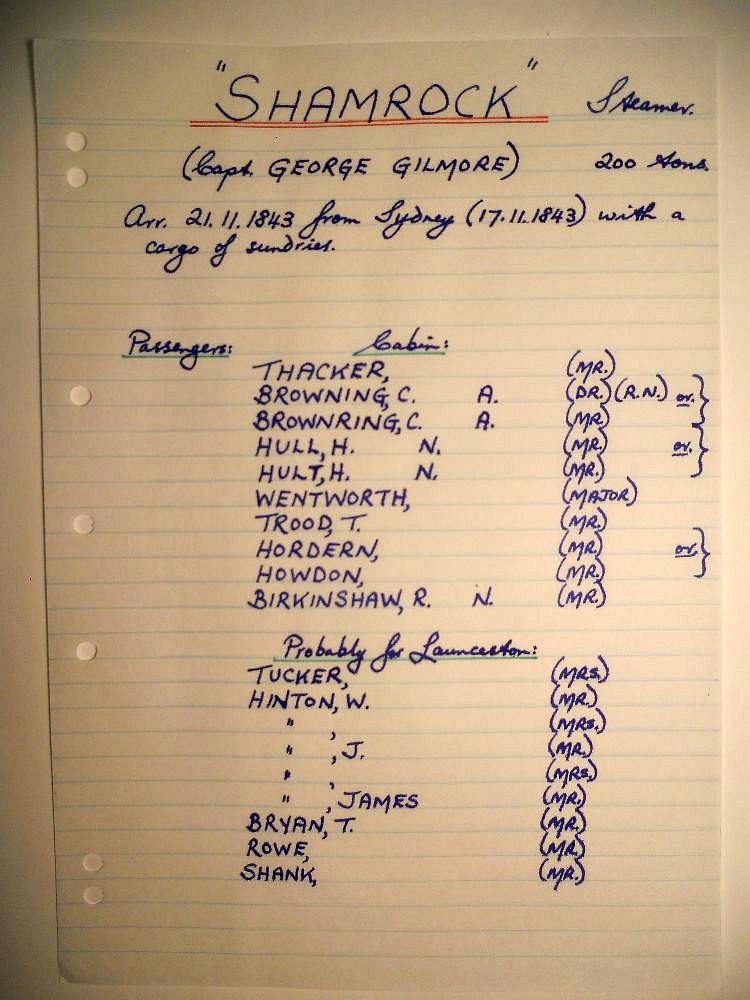 "SHAMROCK" Steamer.
(Capt. GEORGE GILMORE) 200 tons.
Arr. 21.11.1843 from Sydney (17.11.1843) with a
cargo of sundries.
Passengers: Cabin:
THACKER, (MR.)
BROWNING, C. A. (DR.) (R.N.) or. }
BROWNRING, C. A. (MR.)
HULL, H. N. (MR.) or. }
HULT, H. N. (MR.)
WENTWORTH, (MAJOR)
TROOD, T. (MR.)
HORDERN, (MR.) or. }
HOWDON, (MR.)
BIRKINSHAW, R. N. (MR.)
Probably for Launceston:
TUCKER, (MRS.)
HINTON, W. (MR.)
" , (MRS.)
" , J. (MR.)
" , (MRS.)
" , JAMES (MR.)
BRYAN, T. (MR.)
ROWE, (MR.)
SHANK, (MR.)